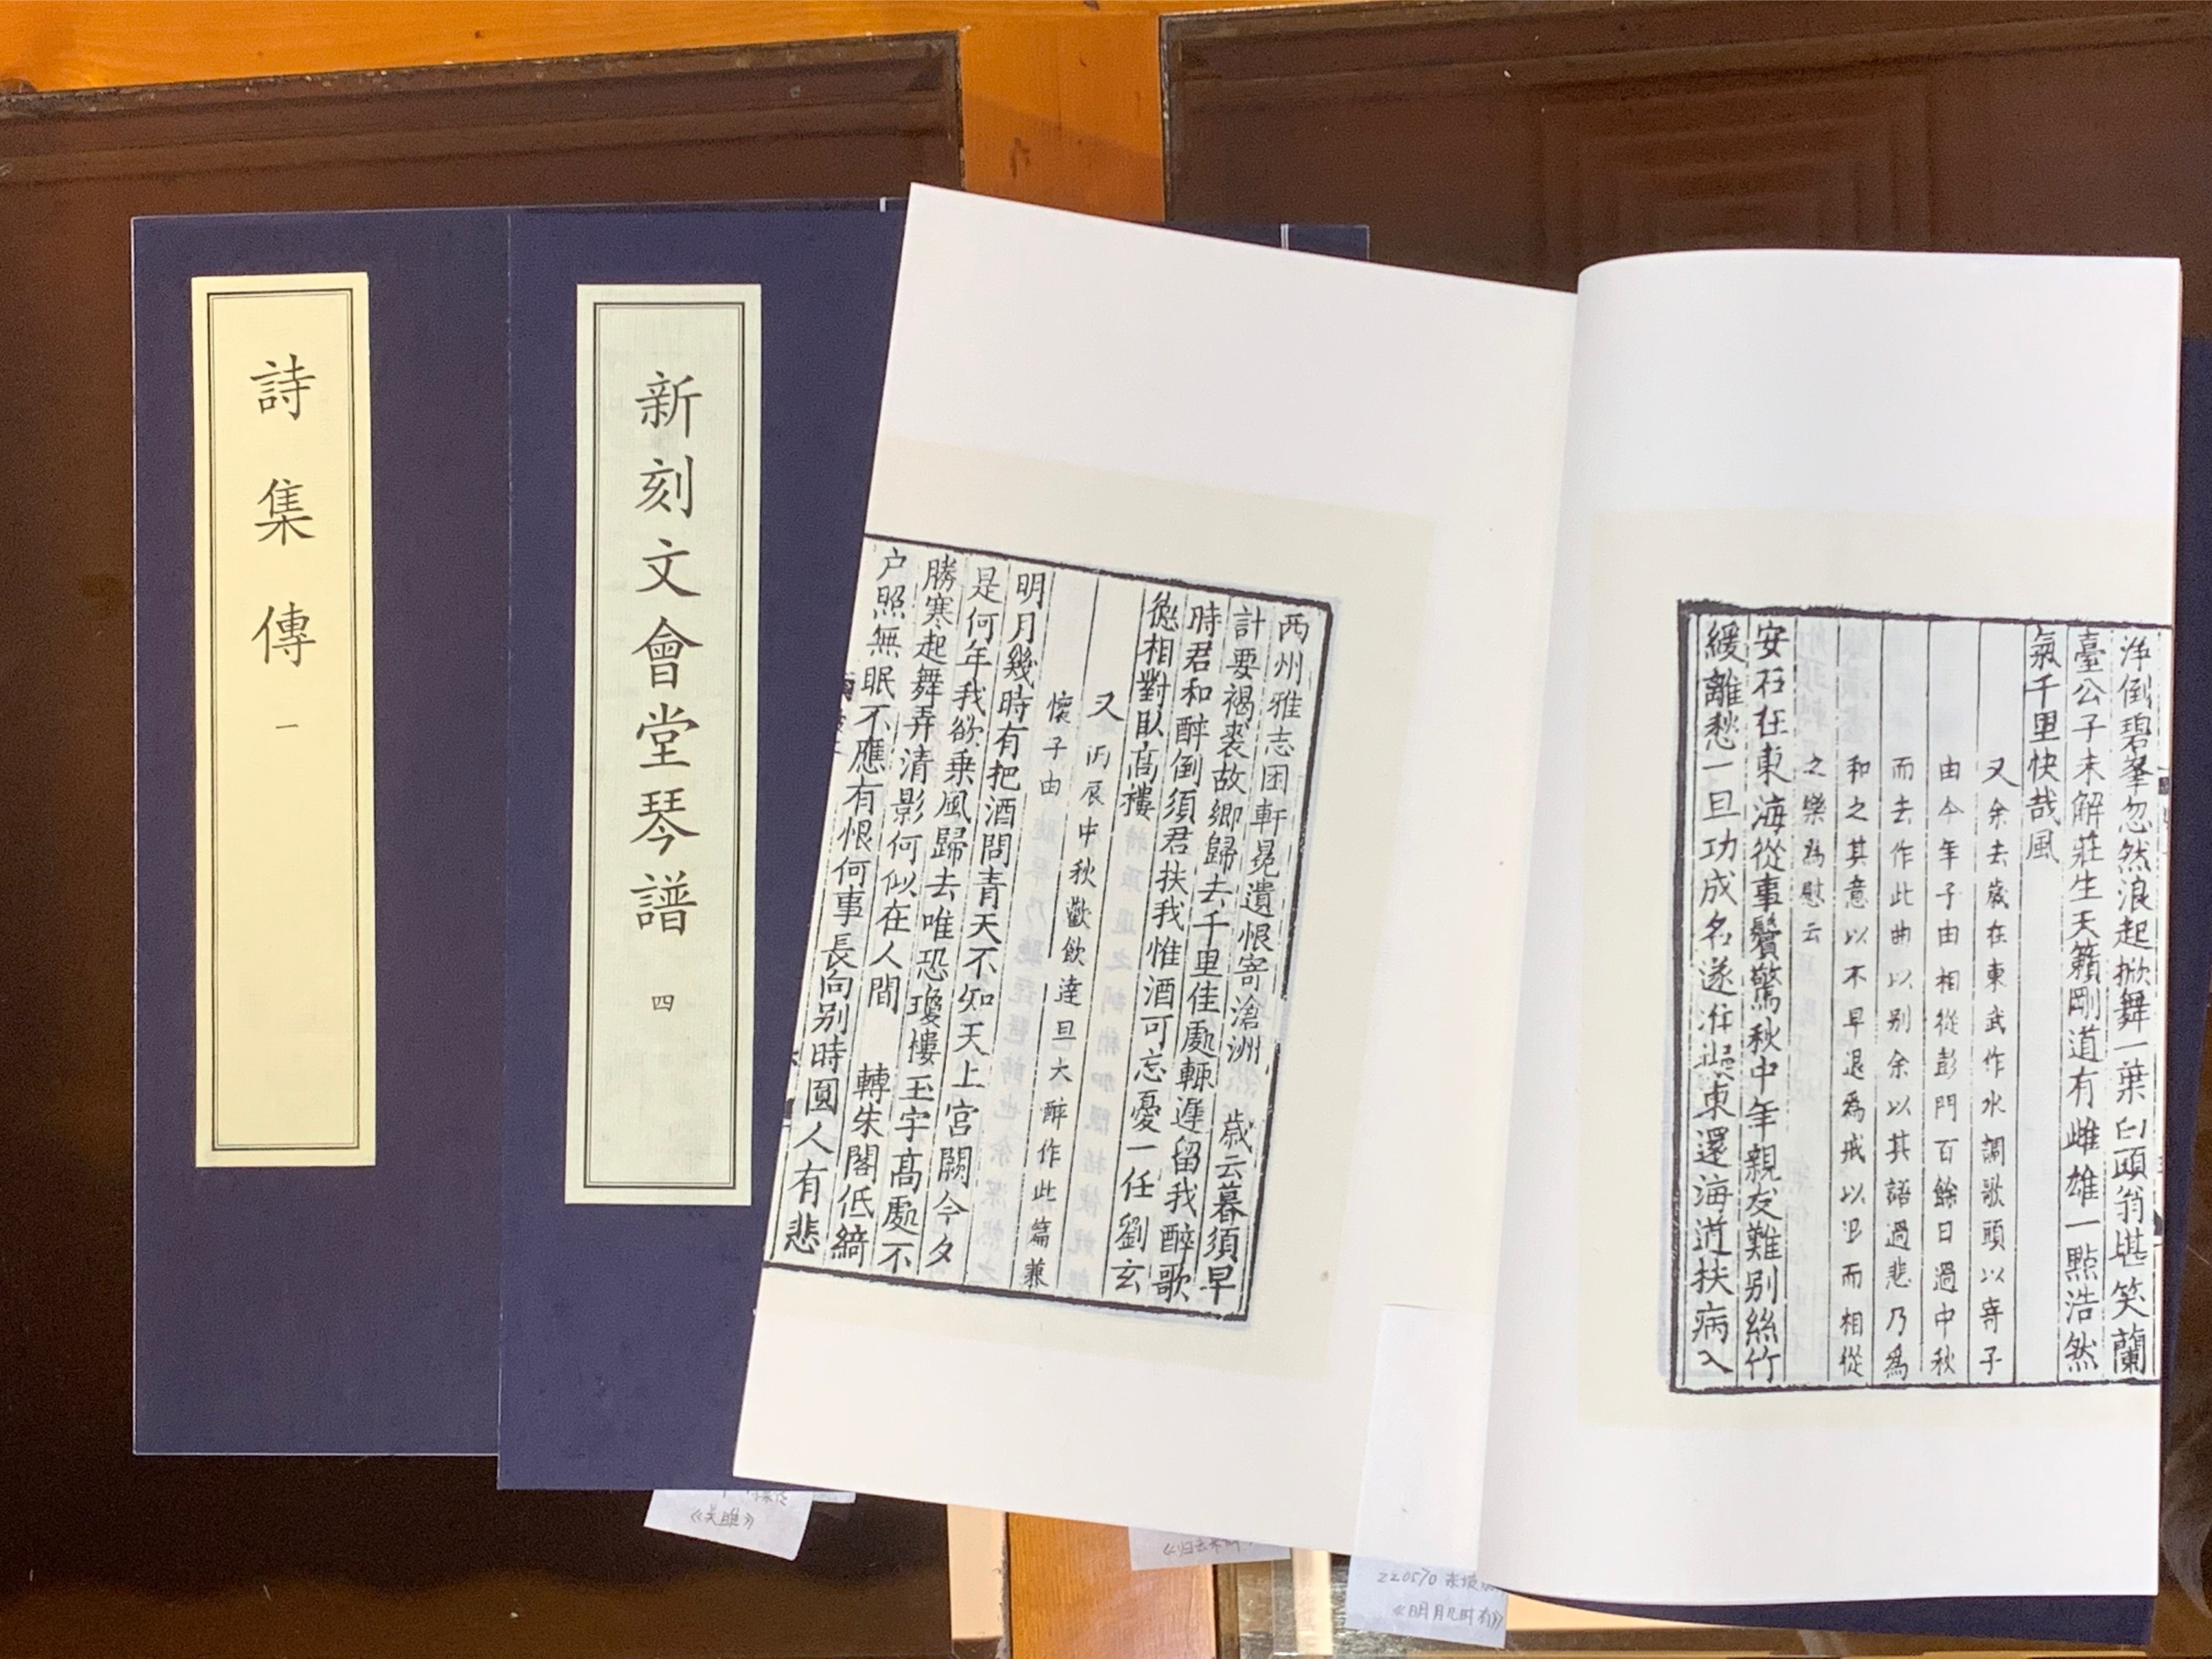 詩集傳 一
新刻文會堂琴譜 四
洋倒碧峯忽然浪起掀舞一葉白頭翁堪笑蘭
臺公子未解莊生天籟剛道有雌雄一點浩然
氣千里快哉風
又余去歲在東武作水調歌頭以寄子
由今年子由相從彭門百餘日過中秋
而去作此曲以别余以其語過悲乃爲
和之其意以不早退爲戒以退而相從
之樂爲慰云
安石在東海從事鬢驚秋中年親友難别絲竹
緩離愁一旦功成名遂准擬東還海道扶病入
西州雅志困軒冕遺恨寄滄洲 歲云暮須早
計要褐裘故鄉歸去千里佳處輙遲留我醉歌
時君和醉倒須君扶我惟酒可忘憂一任劉玄
德相對臥高樓
又 丙辰中秋歡飲達旦大醉作此篇兼
懷子由
明月幾時有把酒問青天不知天上宮闕今夕
是何年我欲乗風歸去唯恐瓊樓玉宇高處不
勝寒起舞弄清影何似在人間 轉朱閣低綺
户照無眠不應有恨何事長向别時圓人有悲
《关雎》
《归去来
220570 东坡
《明月几时有》